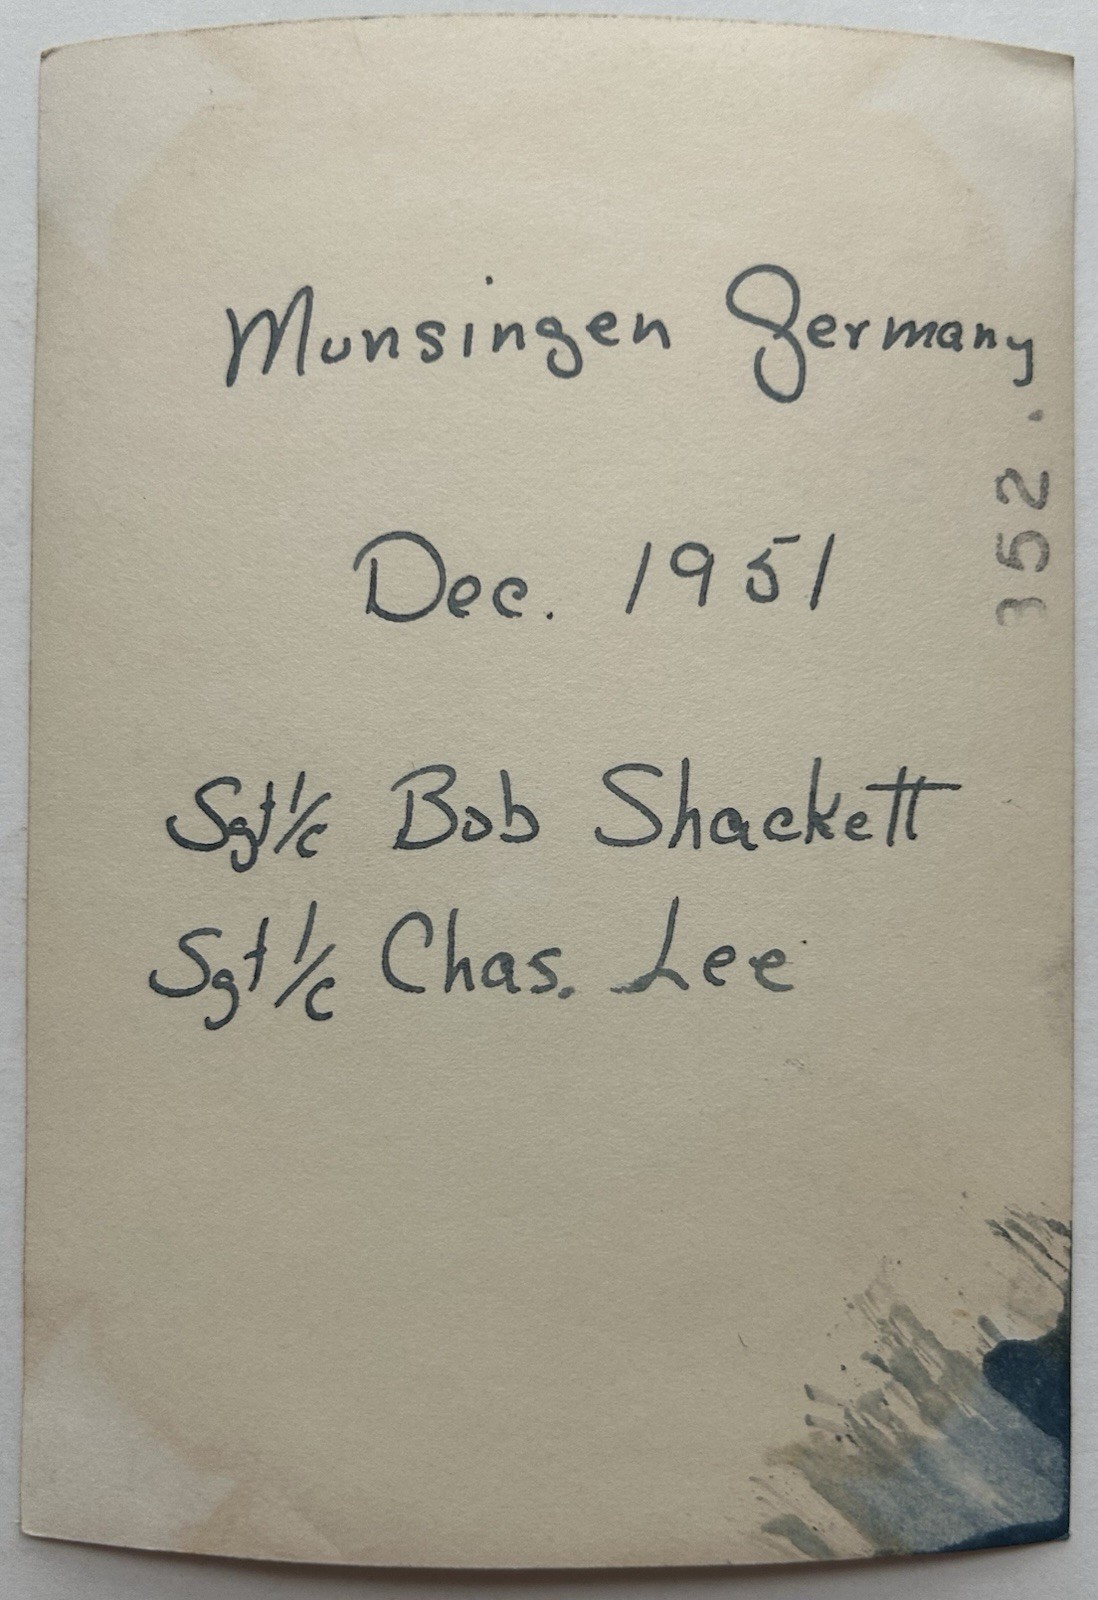 Munsingen Germany
Dec. 1951
Sgt 1/c Bob Shackett
Sgt 1/c Chas. Lee
352.